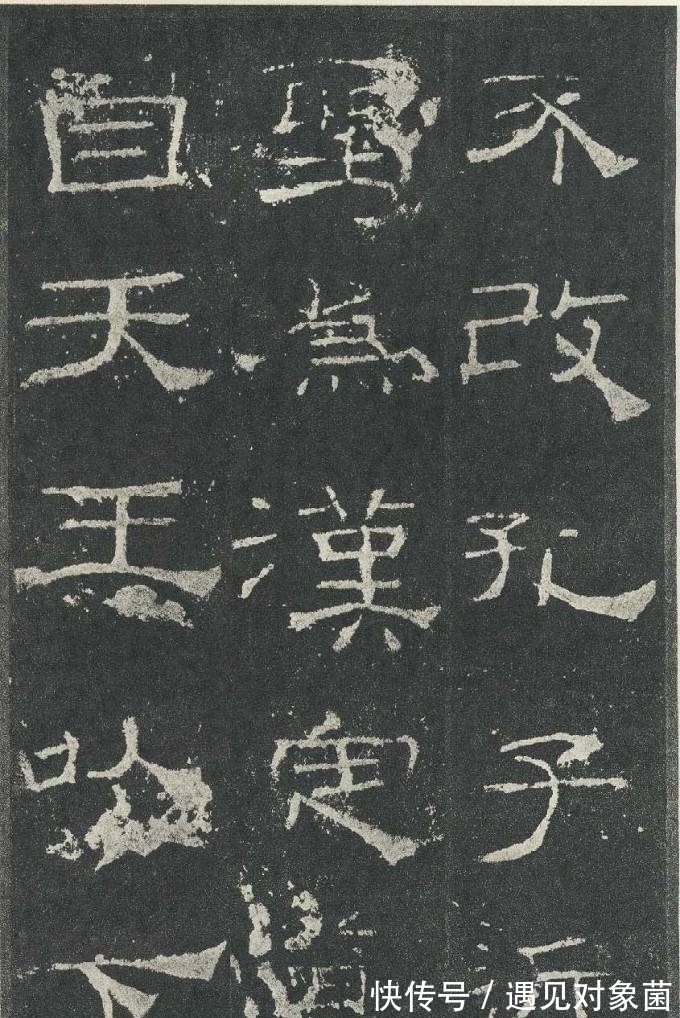 不改孔子近
聖為漢定道
自天王以下
快传号 / 遇见对象菌